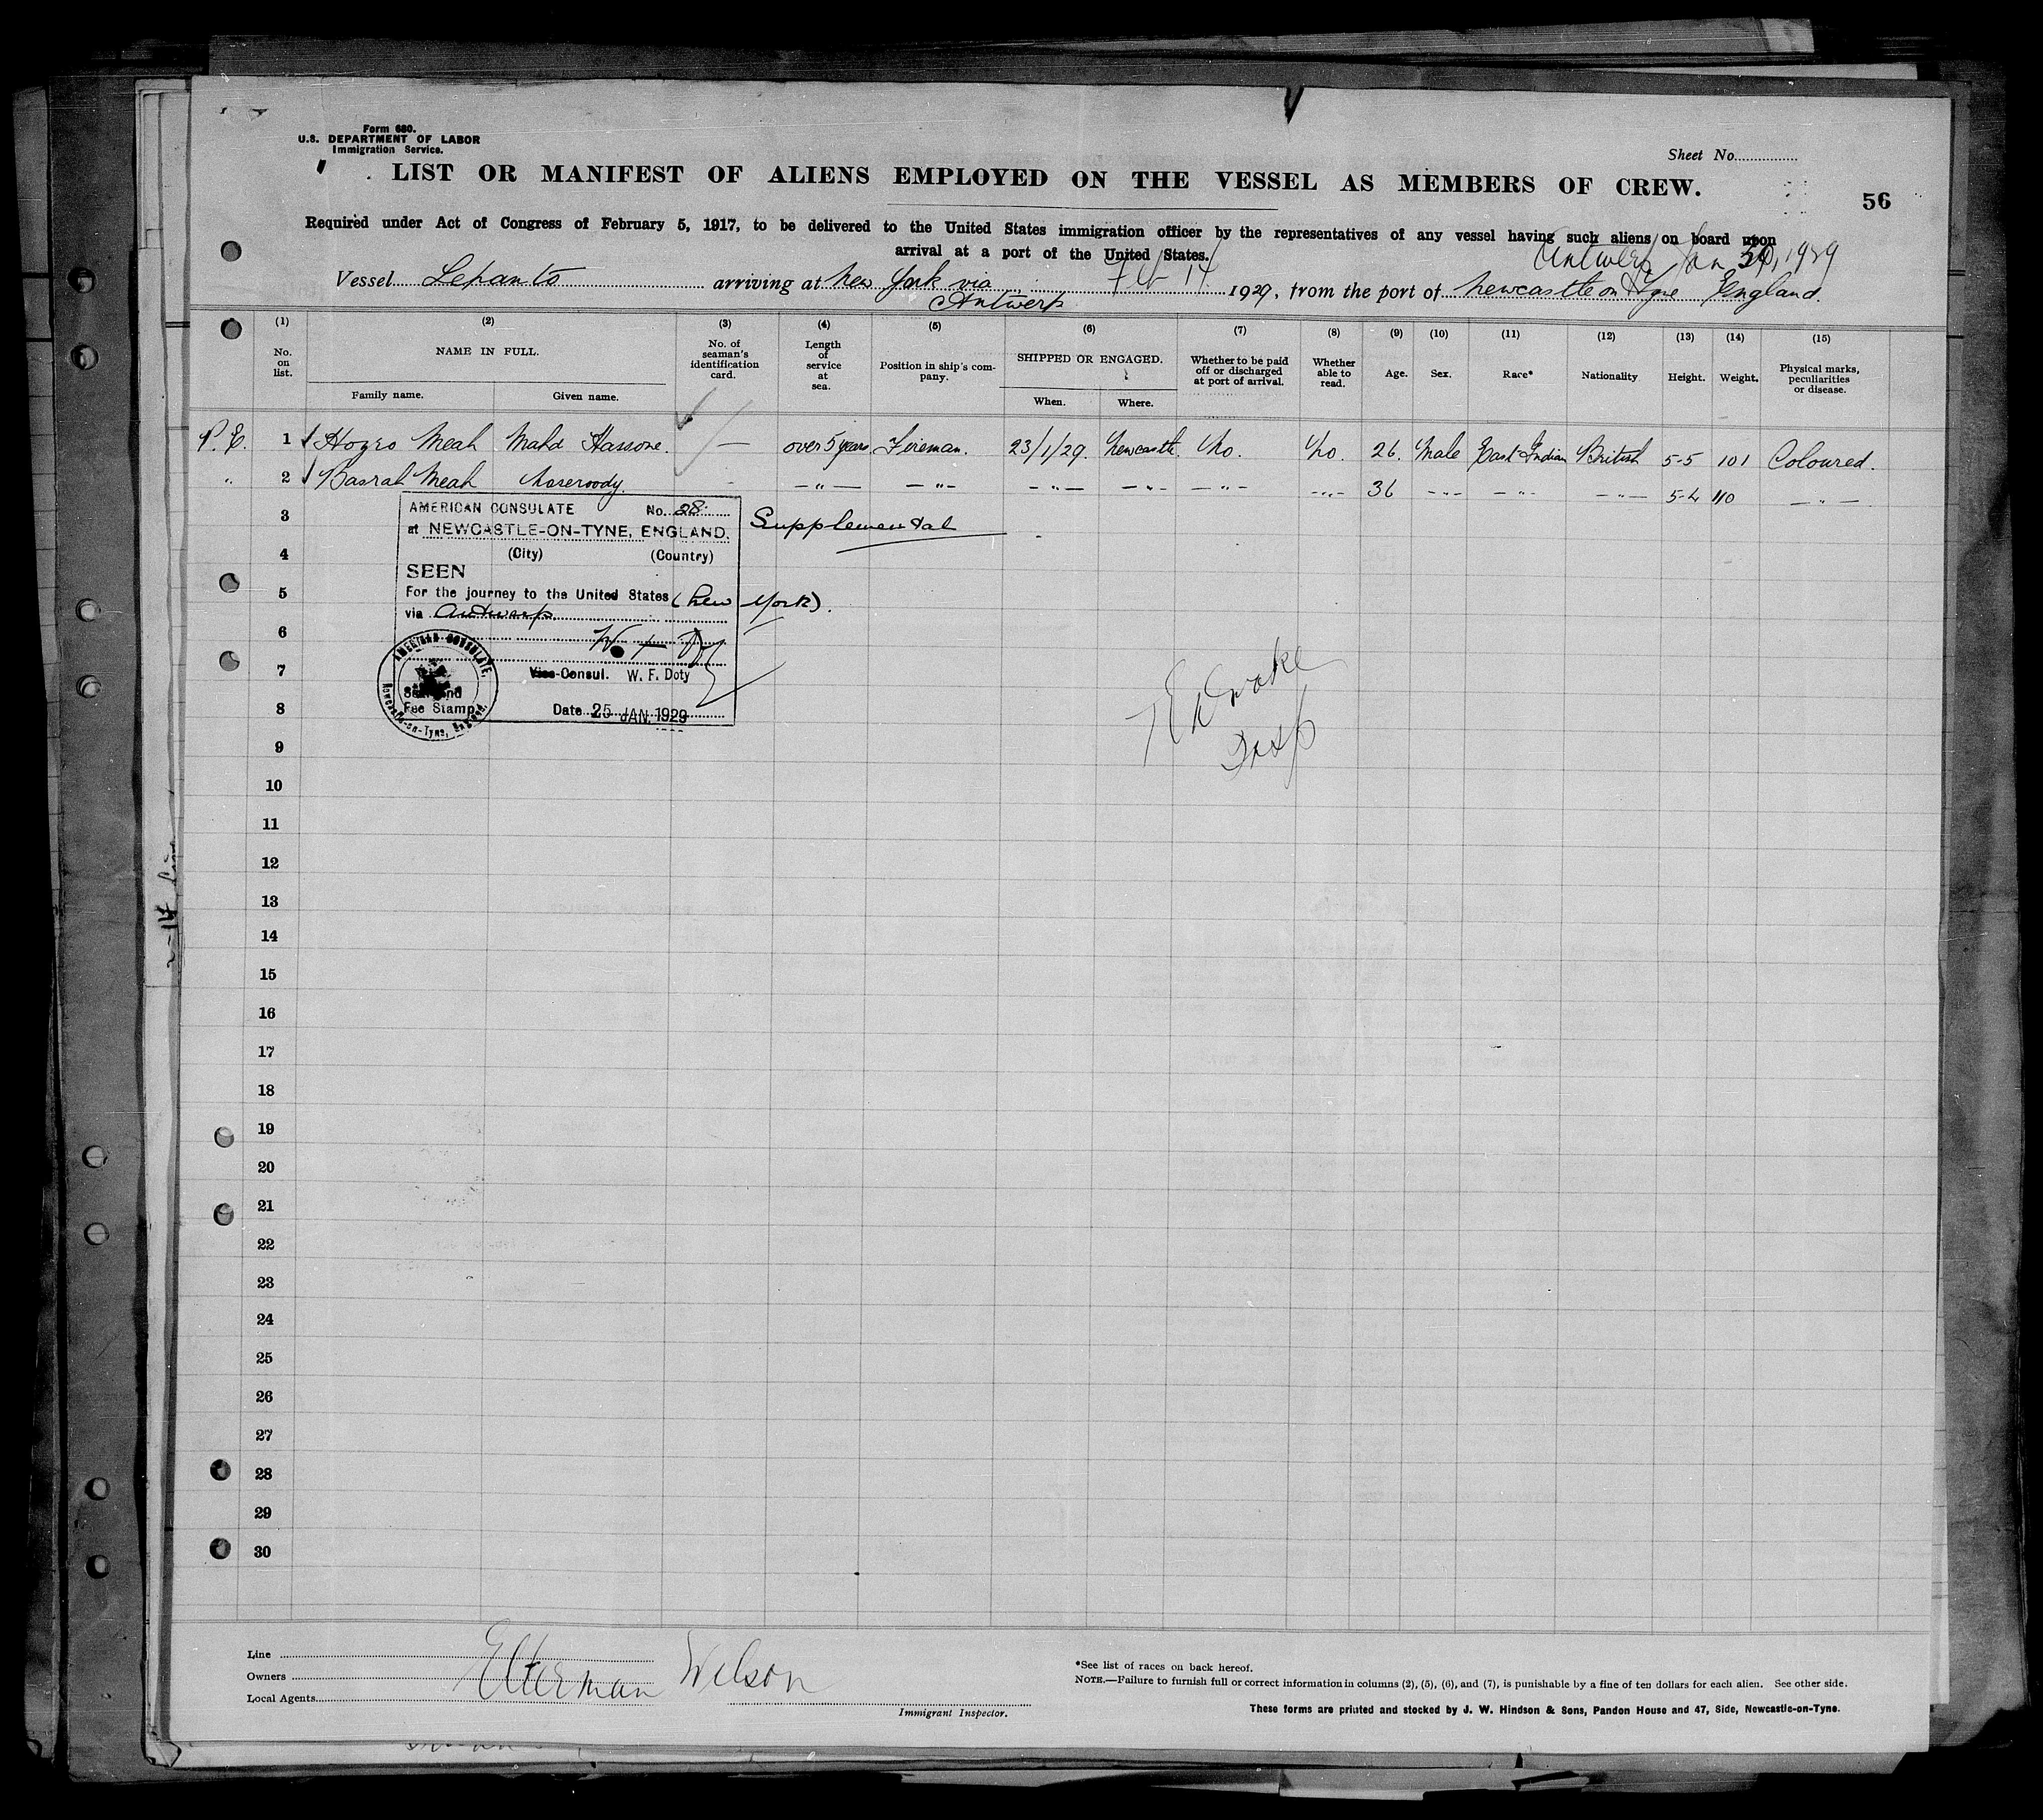 Form 680.
U.S. DEPARTMENT OF LABOR
Immigration Service.
Sheet No.
LIST OR MANIFEST OF ALIENS EMPLOYED ON THE VESSEL AS MEMBERS OF CREW.
56
Required under Act of Congress of February 5, 1917, to be delivered to the United States immigration officer by the representatives of any vessel having such aliens on board upon
arrival at a port of the United States.
Antwerp Jan 30, 1929
Vessel Lepanto arriving at New York via Antwerp Feb 14 1929, from the port of Newcastle on Tyne England
(1) (2) (3) (4) (5) (6) (7) (8) (9) (10) (11) (12) (13) (14) (15)
No. on list. NAME IN FULL. Family name. Given name. No. of seaman's identification card. Length of service at sea. Position in ship's company. SHIPPED OR ENGAGED. When. Where. Whether to be paid off or discharged at port of arrival. Whether able to read. Age. Sex. Race* Nationality Height. Weight. Physical marks, peculiarities or disease.
P.E. 1 Hozro Meah Mahd Hassone. — over 5 years Fireman. 23/1/29. Newcastle. No. No. 26. Male East Indian British 5-5 101 Coloured.
" 2 Basrah Meah — " — — " — — " — — " — — " — — " — 36 — " — — " — — " — 5-4 110 — " —
3
AMERICAN CONSULATE No. 28.
at NEWCASTLE-ON-TYNE, ENGLAND.
Supplemental
(City) (Country)
4
SEEN
5
For the journey to the United States (New York).
via Antwerp
6
7
Vice-Consul. W. F. Doty
AMERICAN CONSULATE, Newcastle-on-Tyne, England.
Seal and
Fee Stamp
Date 25 JAN. 1929
8
9
10
11
12
13
14
15
16
17
18
19
20
21
22
23
24
25
26
27
28
29
30
Line
Owners
Local Agents
Ellerman Wilson
Immigrant Inspector.
*See list of races on back hereof.
NOTE.—Failure to furnish full or correct information in columns (2), (5), (6), and (7), is punishable by a fine of ten dollars for each alien. See other side.
These forms are printed and stocked by J. W. Hindson & Sons, Pandon House and 47, Side, Newcastle-on-Tyne.